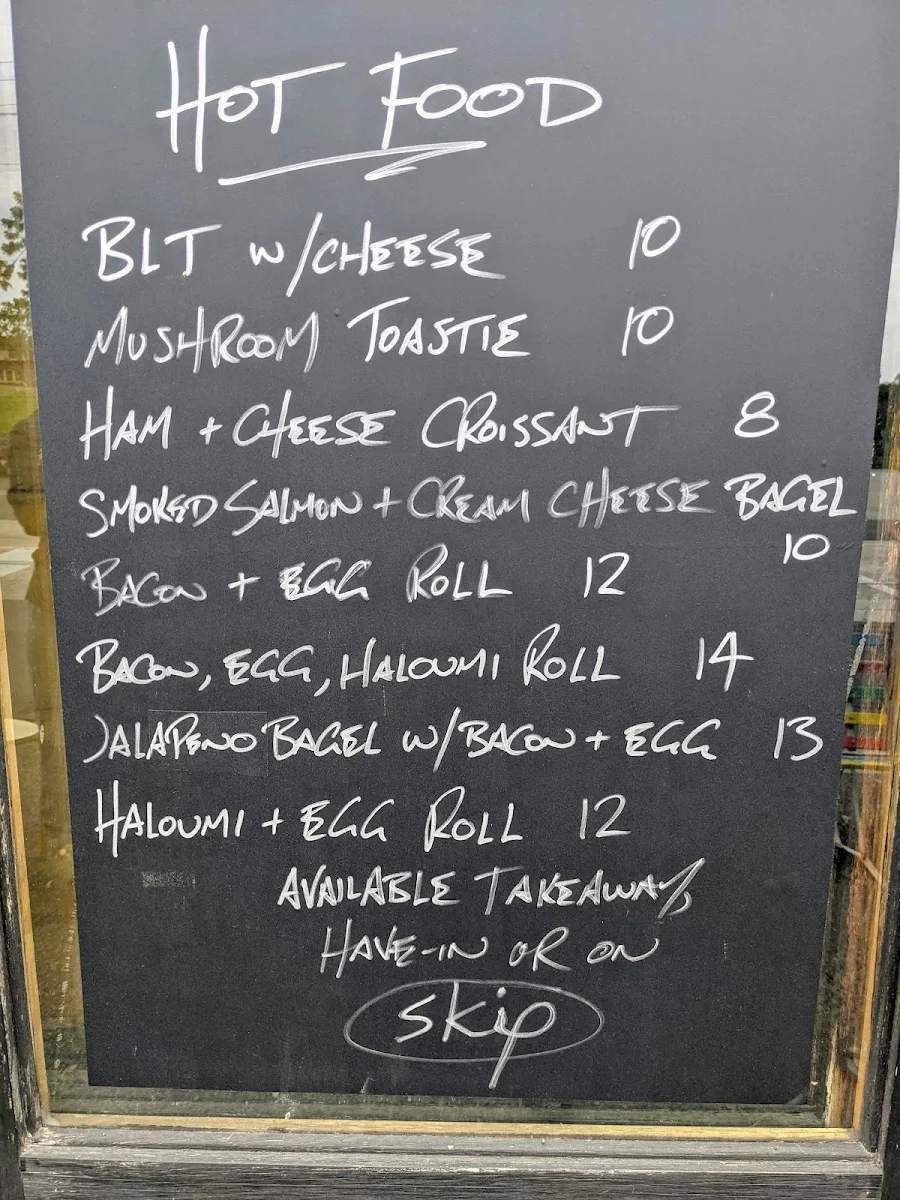 HOT FOOD
BLT W/CHEESE 10
MUSHROOM TOASTIE 10
HAM + CHEESE CROISSANT 8
SMOKED SALMON + CREAM CHEESE BAGEL
10
BACON + EGG ROLL 12
BACON, EGG, HALOUMI ROLL 14
JALAPENO BAGEL W/BACON + EGG 13
HALOUMI + EGG ROLL 12
AVAILABLE TAKEAWAY,
HAVE-IN OR ON
skip